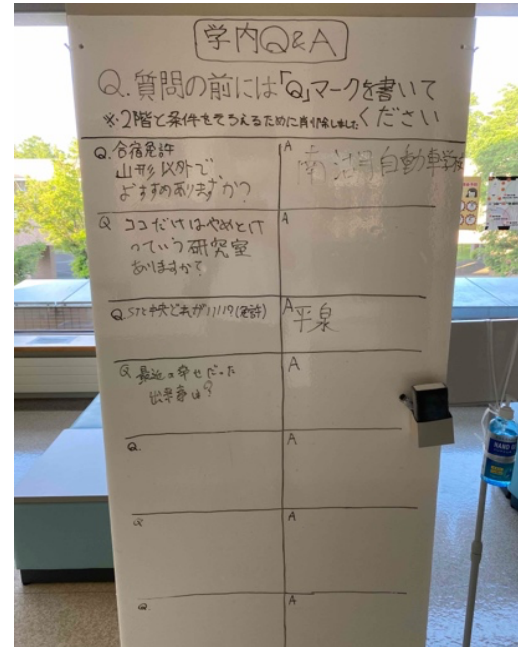 学内Q&A
Q.質問の前には「Q」マークを書いて
ください
※2階と条件をそろえるために削除しました
Q.合宿免許
山形以外で
おすすめありますか?
A
南湖自動車学校
Q ココだけはやめとけ
っていう研究室
ありますか?
A
Q
どれがいい?(免許)
A
平泉
Q 最近の幸せだった
出来事は?
A
Q.
A
Q
A
Q.
A
HAND